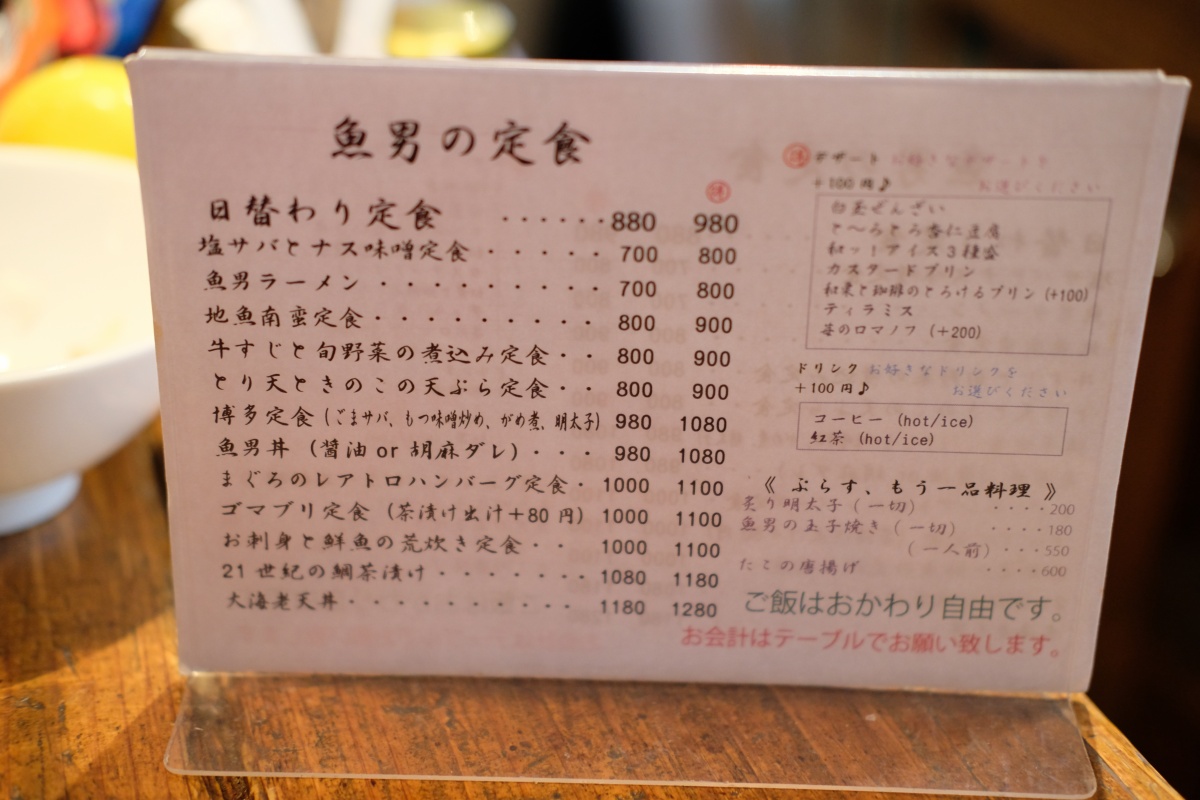 魚男の定食
日替わり定食 ・・・・・・880 980
塩サバとナス味噌定食 ・・・・・ 700 800
魚男ラーメン ・・・・・・・・・ 700 800
地魚南蛮定食・・・・・・・・・ 800 900
牛すじと旬野菜の煮込み定食・・ 800 900
とり天ときのこの天ぷら定食・・ 800 900
博多定食(ごまサバ、もつ味噌炒め、がめ煮、明太子) 980 1080
魚男丼(醤油 or 胡麻ダレ)・・・ 980 1080
まぐろのレアトロハンバーグ定食・ 1000 1100
ゴマブリ定食(茶漬け出汁+80円) 1000 1100
お刺身と鮮魚の荒炊き定食・・ 1000 1100
21世紀の鯛茶漬け・・・・・・・ 1080 1180
大海老天丼・・・・・・・・・・ 1180 1280
デザート お好きなデザートを
+100円♪ お選びください
白玉ぜんざい
と〜ろとろ杏仁豆腐
和ッ!アイス3種盛
カスタードプリン
和栗と珈琲のとろけるプリン (+100)
ティラミス
苺のロマノフ (+200)
ドリンク お好きなドリンクを
+100円♪ お選びください
コーヒー (hot/ice)
紅茶 (hot/ice)
《 ぷらす、もう一品料理 》
炙り明太子(一切) ・・・・200
魚男の玉子焼き(一切) ・・・・180
(一人前)・・・550
たこの唐揚げ ・・・・600
ご飯はおかわり自由です。
お会計はテーブルでお願い致します。